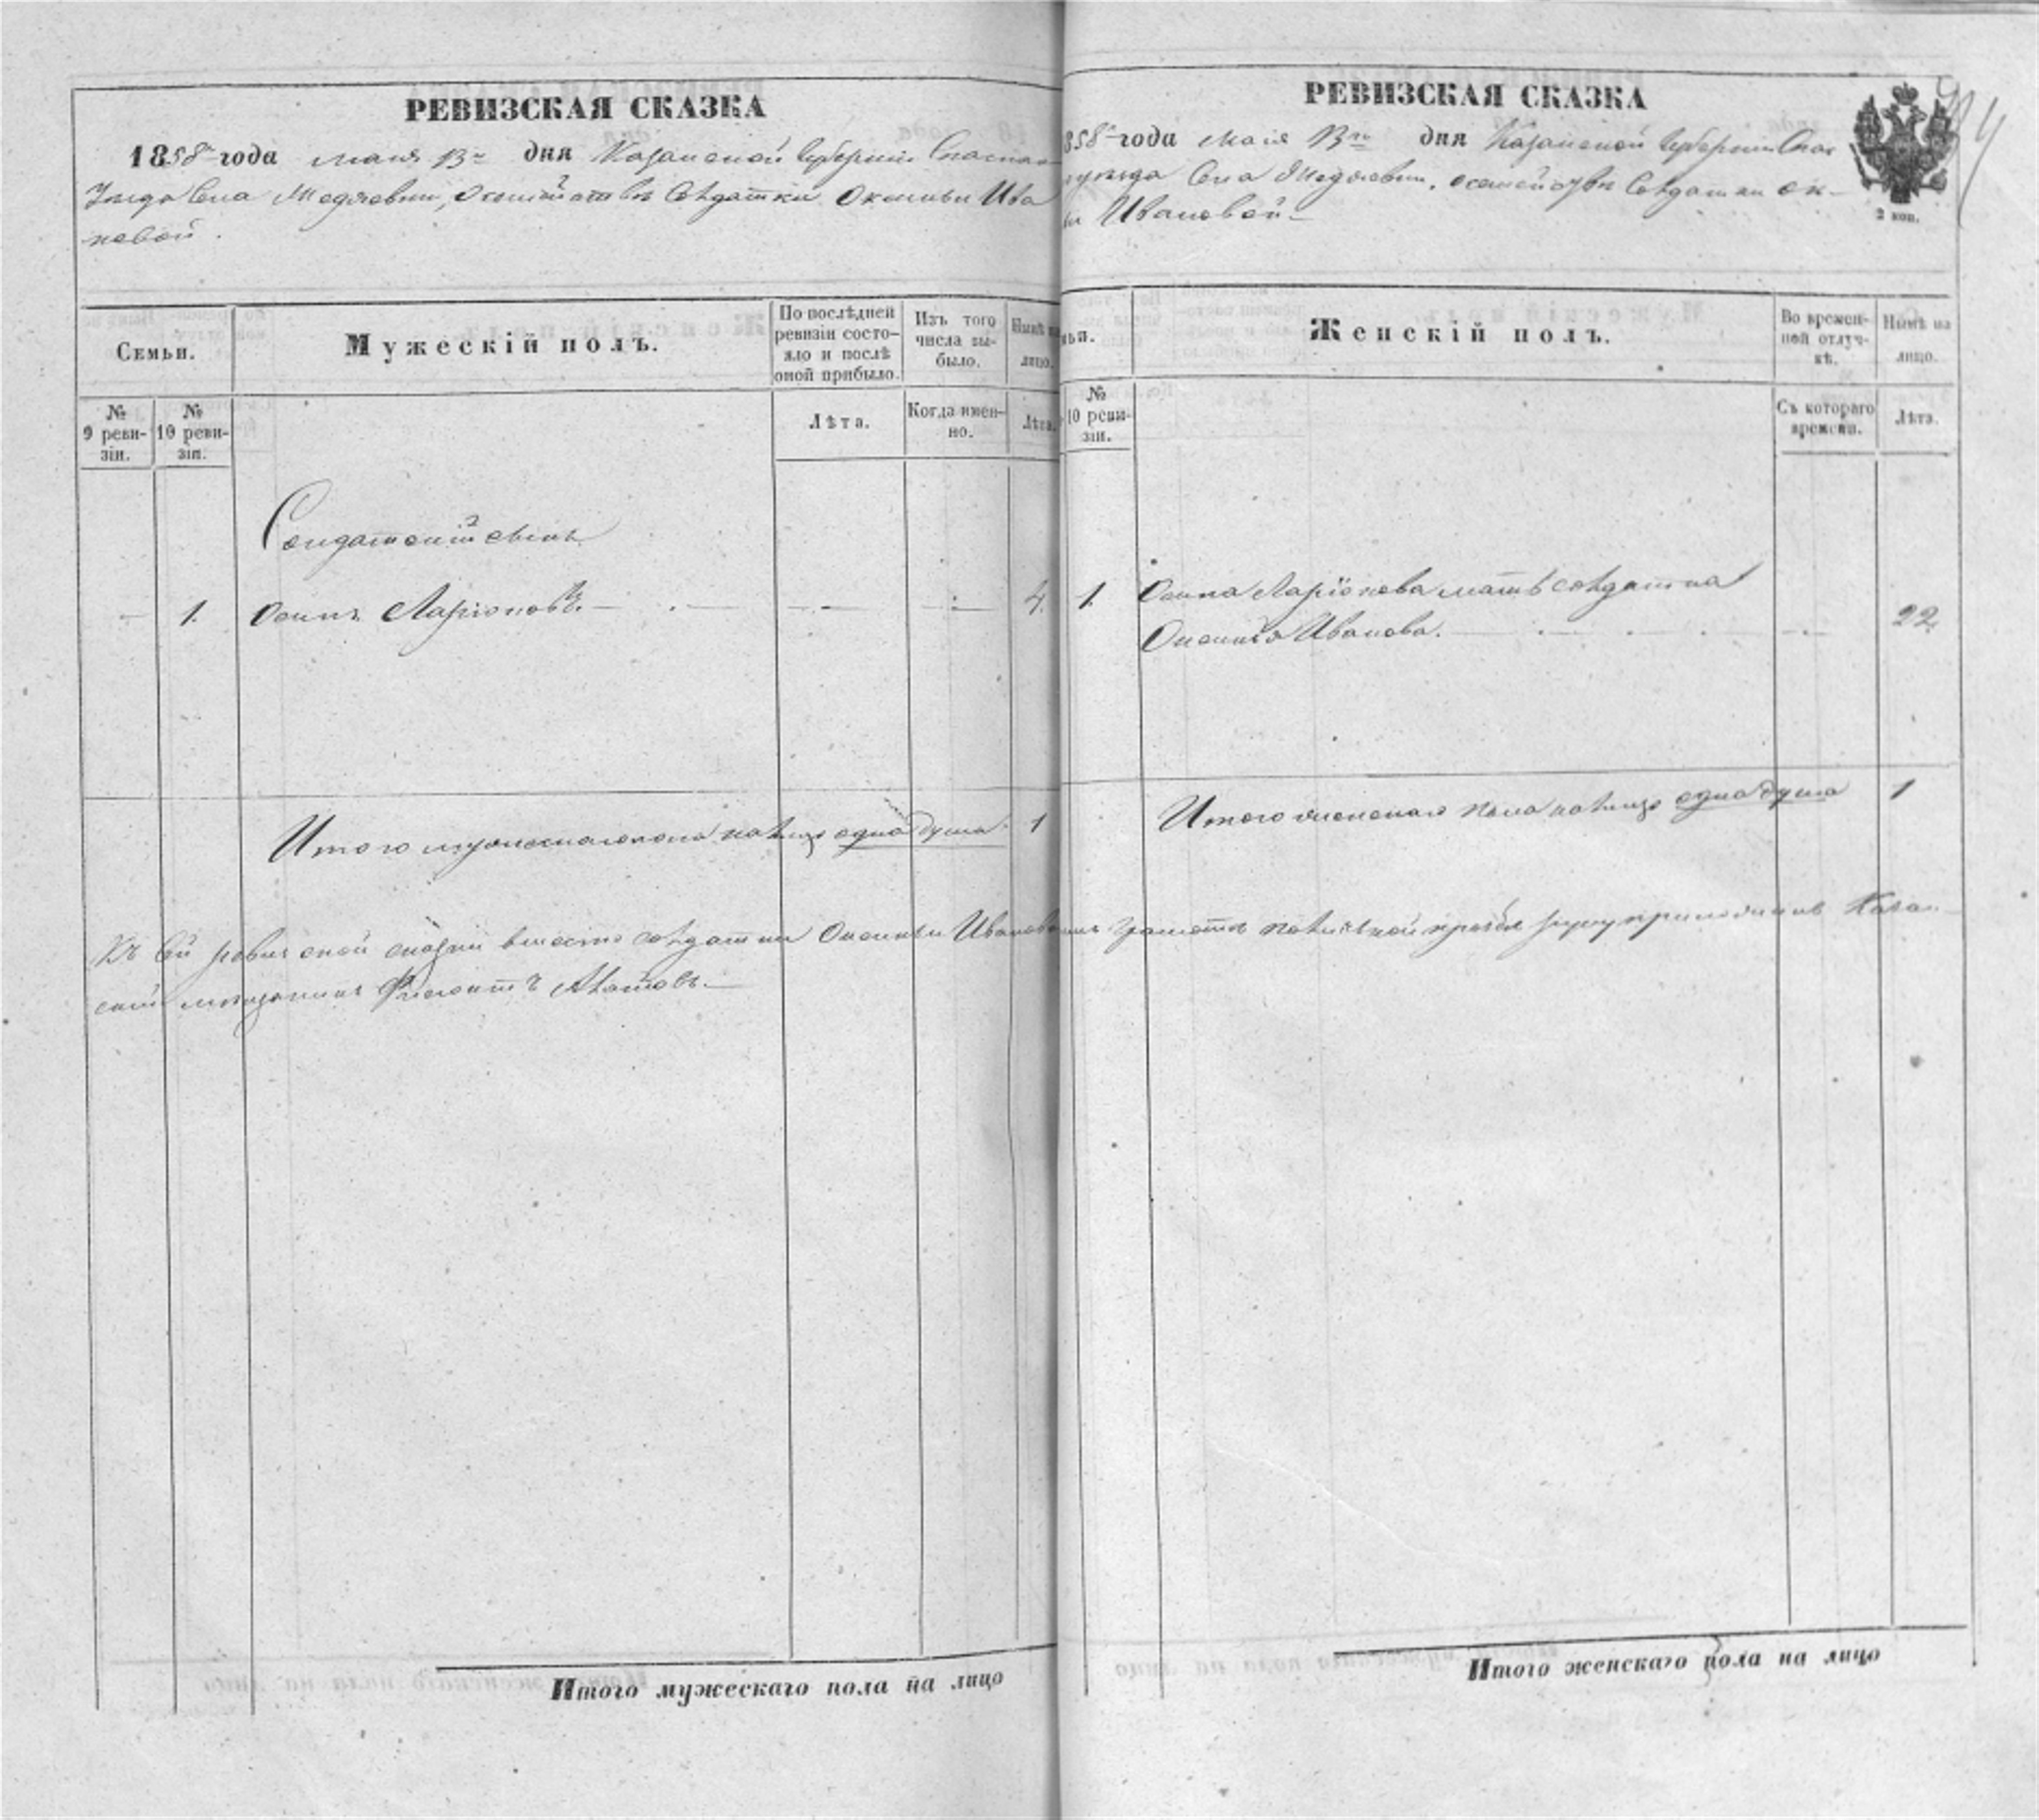 РЕВИЗСКАЯ СКАЗКА
1858 года маия 13 дня Казанской Губерніи
Уезда Села о семействѣ Солдатки Оксиньи Ива
новой.
Семьи.
Мужескій полъ.
По послѣдней ревизіи состо-
яло и послѣ оной прибыло.
Изъ того числа вы-
было.
Нынѣ на лицо.
№ 9 реви-
зіи.
№ 10 реви-
зіи.
Лѣта.
Когда имен-
но.
Лѣта.
Солдатскій сынъ
1. Осипъ Ларіоновъ. 4.
Итого мужескаго пола на лицо одна душа. 1
Итого мужескаго пола на лицо
РЕВИЗСКАЯ СКАЗКА
858 года маия 13 дня Казанской Губерніи Спас
уезда Села о семействѣ Солдатки Ок-
Ивановой
2 коп.
Женскій полъ.
Во времен-
ной отлуч-
кѣ.
Нынѣ на лицо.
№ 10 реви-
зіи.
Съ котораго времени.
Лѣта.
1. Осипа Ларіонова мать солдатка
Оксинья Иванова. 22.
Итого женскаго пола на лицо одна душа 1
Къ сей ревизской сказки вместо солдатки Оксиньи Ивановой грамотѣ по личной прозбѣ руку приложилъ Казан
скій мещанинъ
Итого женскаго пола на лицо